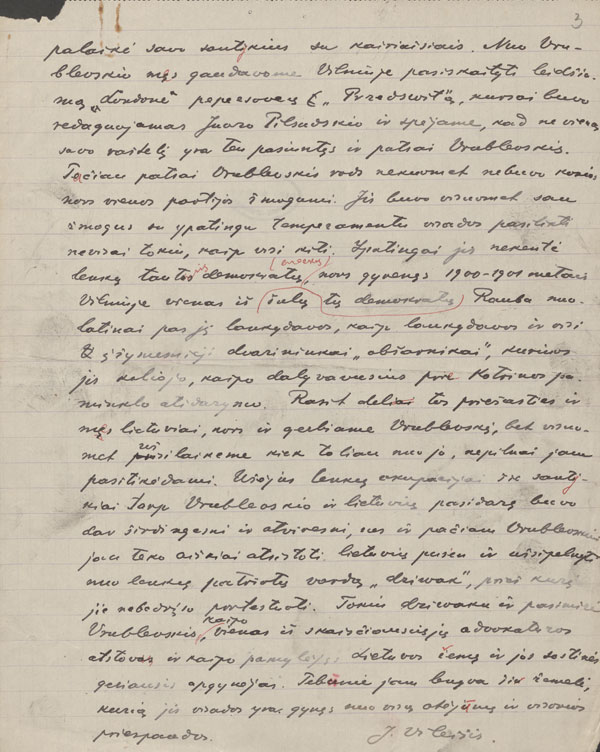 3
palaikė savo santykius su kairiaisiais. Nuo Vru-
blevskio męs gaudavome Vilniuje pasiskaityti leidžia-
mą „Londone“ pepeesovcų „Przedswit'ą, kursai buvo
redaguojamas Juozo Pilsudskio ir spėjame, kad ne vieną
savo raštelį yra ten pasiuntęs ir patsai Vrublevskis.
Tačiau patsai Vrublevskis rods nekuomet nebuvo kokios
nors vienos partijos žmogumi. Jis buvo visuomet sau
žmogus su ypatingu temperamentu visados pasilikti
nevisai tokiu, kaip visi kiti. Ypatingai jis nekentė
lenkų tautos demokratų, nors gyvenęs 1900-1901 metais
Vilniuje vienas iš šulų tų demokratų Rauba nuo-
latinai pas jį lankydavos, kaip lankydavos ir visi
žymesnieji dvarininkai „obšarnikai“, kuriuos
jis keliojo, kaipo dalyvavusius prie Kotrinos pa-
minklo atidarymo. Rasit delei tos priežasties ir
męs lietuviai, nors ir gerbiame Vrublevskį, bet visuo-
met užsilaikėme kiek toliau nuo jo, nepilnai jam
pasitikėdami. Užėjus lenkų okupacijai šie santy-
kiai tarp Vrublevskio ir lietuvių pasidarę buvo
dar širdingesni ir atviresni, nes ir pačiam Vrublevskiui
jau teko aiškiai atsistoti lietuvių pusėn ir užsipelnyt
nuo lenkų patriotų vardą „dziwak“, prieš kurį
jis nebedrįso portestuoti. Tokiu dziwaku ir pasimirė
Vrublevskis, kaipo vienas iš skaisčiausiųjų advokatūros
atstovas ir kaipo Lietuvos žemės ir jos sostinės
geriausis apgynėjai. Tebūnie jam lengva šio žemelė,
kurią jis visados yra gynęs nuo visų atėjūnų ir visokios
priespaudos. J. Vileišis.